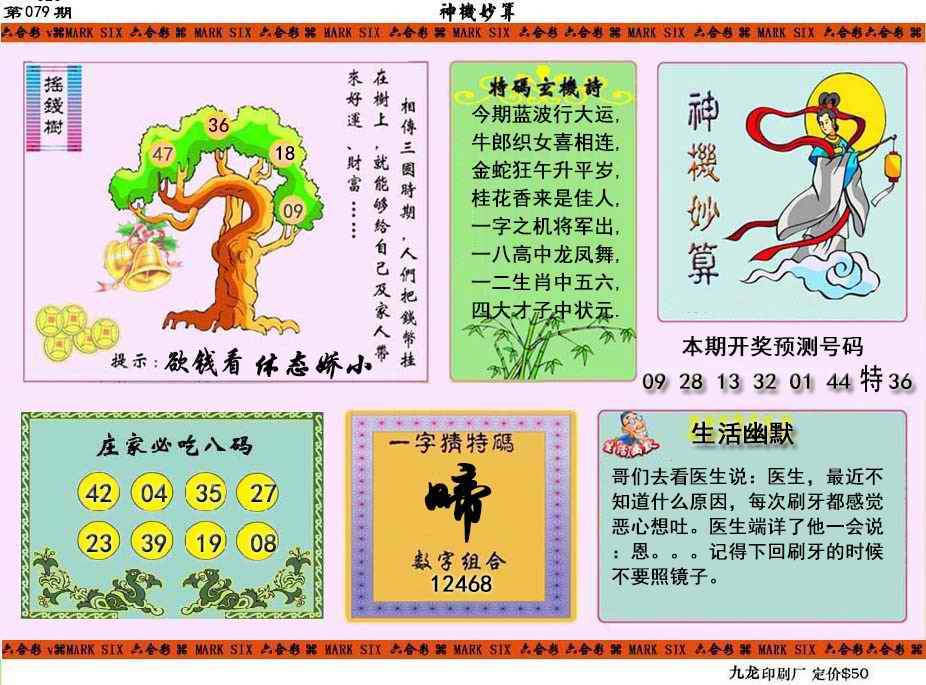 第079期
神機妙算
六合彩 v⌘MARK SIX 六合彩⌘ MARK SIX 六合彩 ⌘ MARK SIX 六合彩 ⌘ MARK SIX 六合彩 ⌘ MARK SIX 六合彩 ⌘ MARK SIX 六合彩六合彩⌘
搖錢樹
相傳三國時期，人們把錢幣挂
在樹上，就能够給自己及家人帶
來好運、財富……
36
47
18
09
提示:欲钱看 体态娇小
特碼玄機詩
今期蓝波行大运,
牛郎织女喜相连,
金蛇狂午升平岁,
桂花香来是佳人,
一字之机将军出,
一八高中龙凤舞,
一二生肖中五六,
四大才子中状元.
神機妙算
本期开奖预测号码
09 28 13 32 01 44 特36
庄家必吃八码
42 04 35 27
23 39 19 08
一字猜特碼
啼
数字组合
12468
生活幽默
生活幽默
哥们去看医生说：医生，最近不
知道什么原因，每次刷牙都感觉
恶心想吐。医生端详了他一会说
：恩。。。记得下回刷牙的时候
不要照镜子。
六合彩 v⌘MARK SIX 六合彩⌘ MARK SIX 六合彩 ⌘ MARK SIX 六合彩 ⌘ MARK SIX 六合彩 ⌘ MARK SIX 六合彩 ⌘ MARK SIX 六合彩六合彩⌘
九龙印刷厂 定价$50